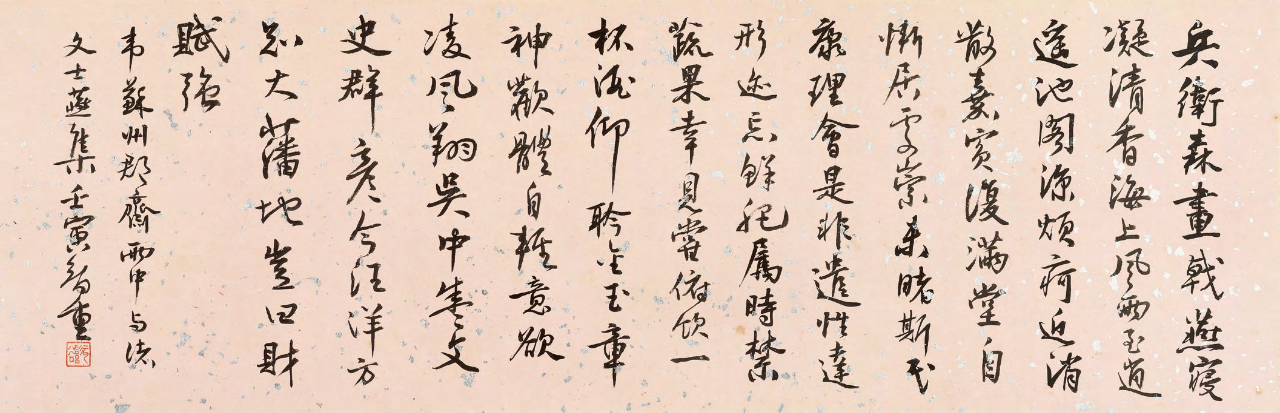 兵衛森畫戟燕寢
凝清香海上風雨至逍
遥池閣凉煩疴近消
散嘉賓復滿堂自
慚居處崇未睹斯民
康理會是非遣性達
形迹忘鮮肥屬時禁
蔬果幸見嘗俯飲一
杯酒仰聆金玉章
神歡體自輕意欲
凌風翔吳中盛文
史群彥今汪洋方
知大藩地豈曰財
賦強
韋蘇州郡齋雨中與諸
文士燕集壬寅智重